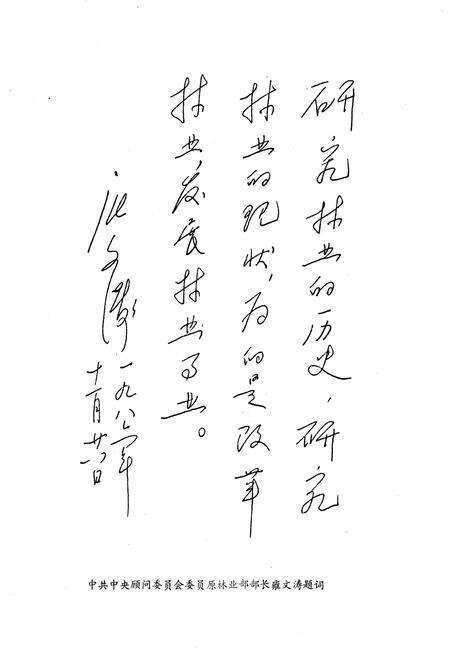 研究林业的历史，研究
林业的现状，为的是改革
林业，发展林业事业。
雍文涛
一九八六年
十一月廿一日
中共中央顾问委员会委员原林业部部长雍文涛题词